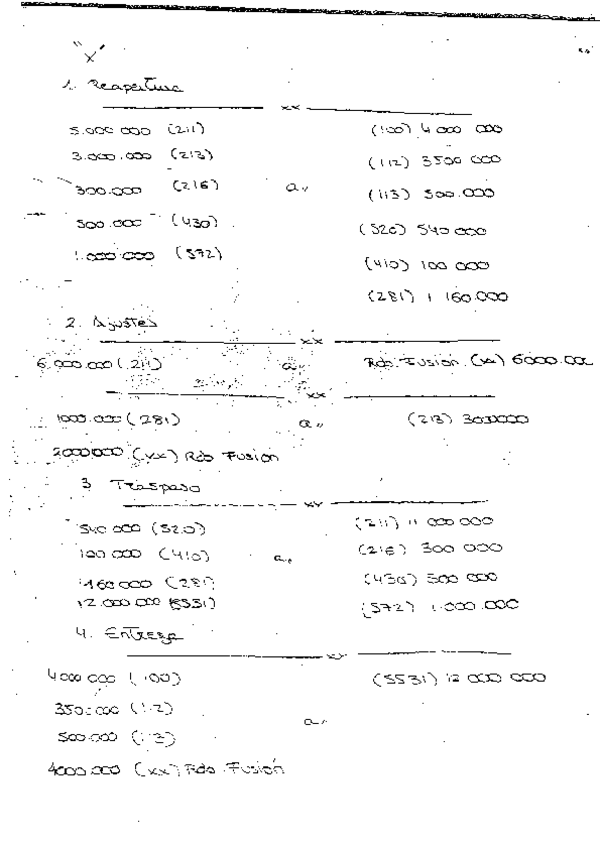 "X"
1. Reapertura
xx
5.000.000 (211) (100) 4000 000
3.000.000 (213) (112) 3500 000
300.000 (216) a,, (113) 500.000
500.000 (430) (520) 540 000
1.000.000 (572) (410) 100 000
(281) 1 160.000
2. Ajustes
xx
6.000.000 (211) a,, Rdo. Fusión (xx) 6000.000
xx
1000.000 (281) a,, (213)
2000000 (xx) Rdo Fusión
3 Traspaso
xx
540 000 (520) (211) 11 000 000
100 000 (410) a,, (216) 300 000
160 000 (281) (430) 500 000
12.000.000 (5531) (572) 1.000.000
4. Entrega
xx
4000 000 (100) (5531) 12 000 000
a,,
500.000
4000.000 (xx) Rdo. Fusión